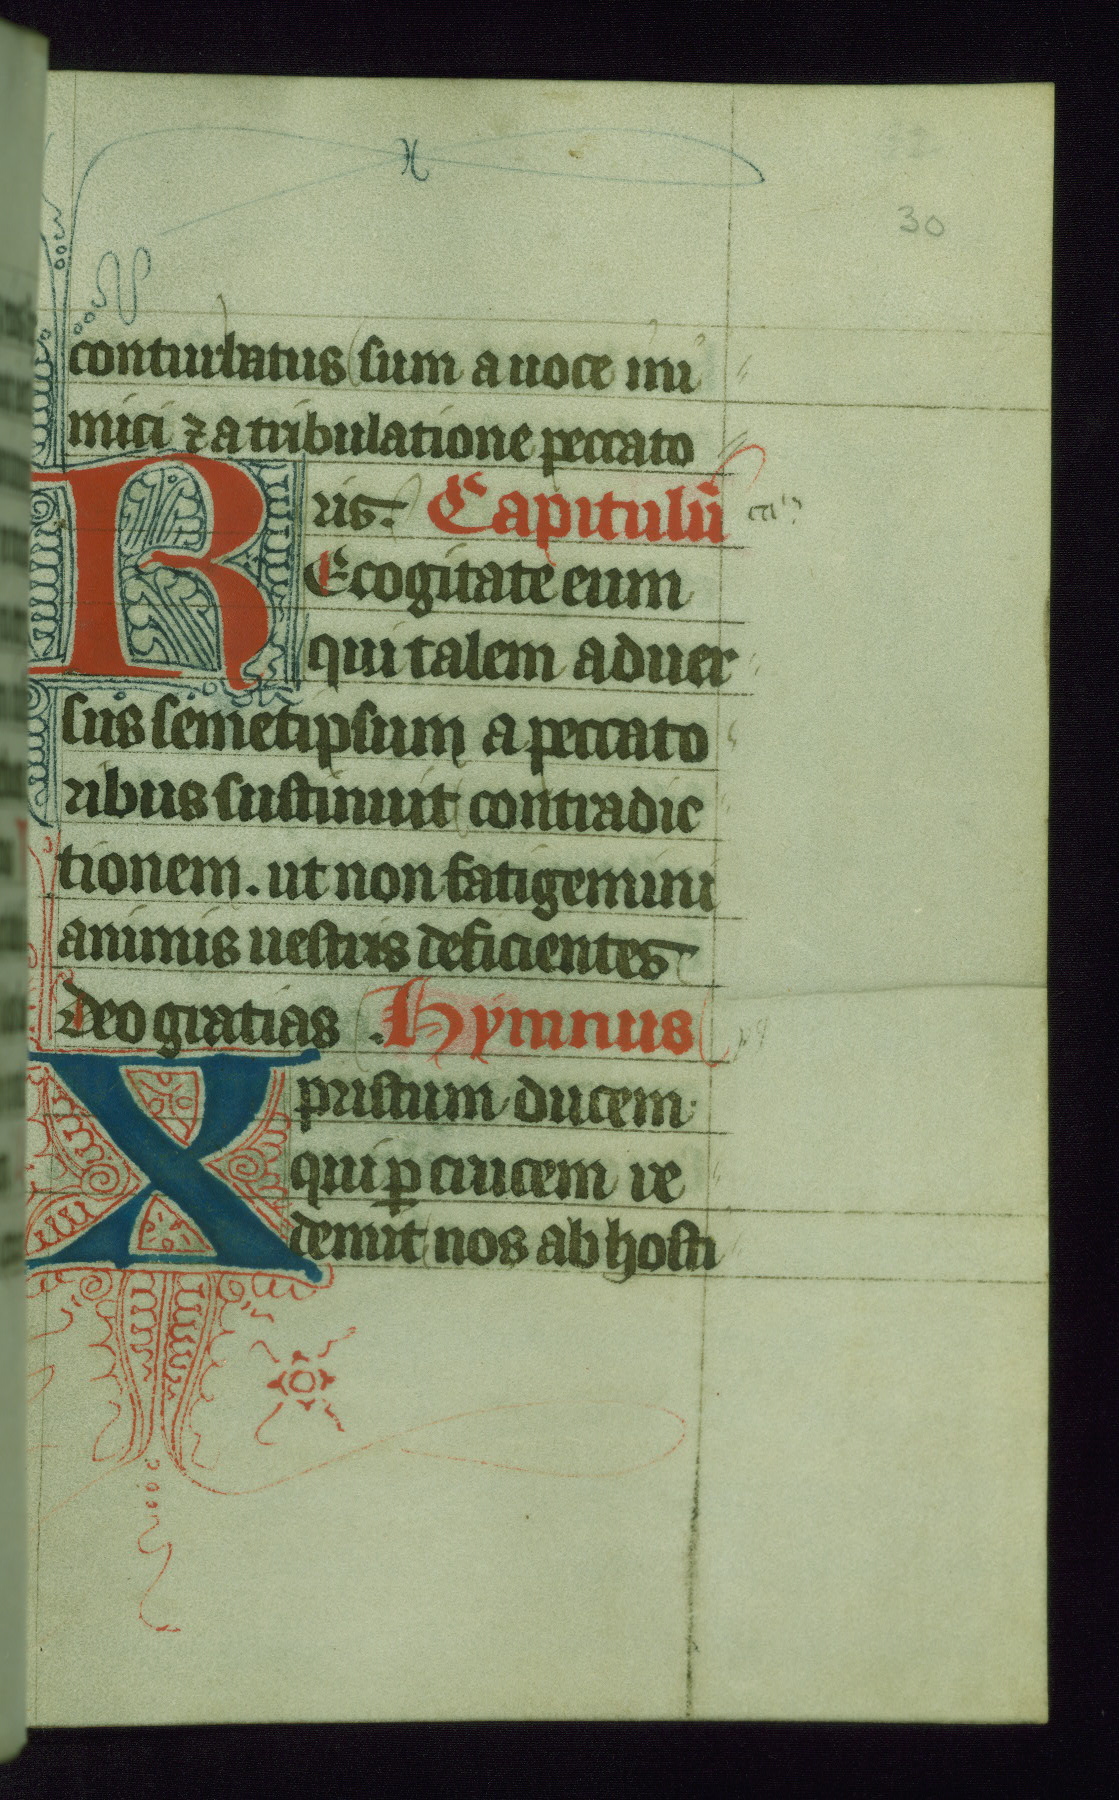 30
conturbatus sum a uoce ini
mici ⁊ a tribulatione peccato
ris. Capitulū
REcogitate eum
qui talem aduer
sus semetipsum a peccato
ribus sustinuit contradic
tionem. ut non fatigemini
animis uestris deficientes
deo gratias. Hymnus
Xpristum ducem
qui ꝑ crucem re
demit nos ab hosti